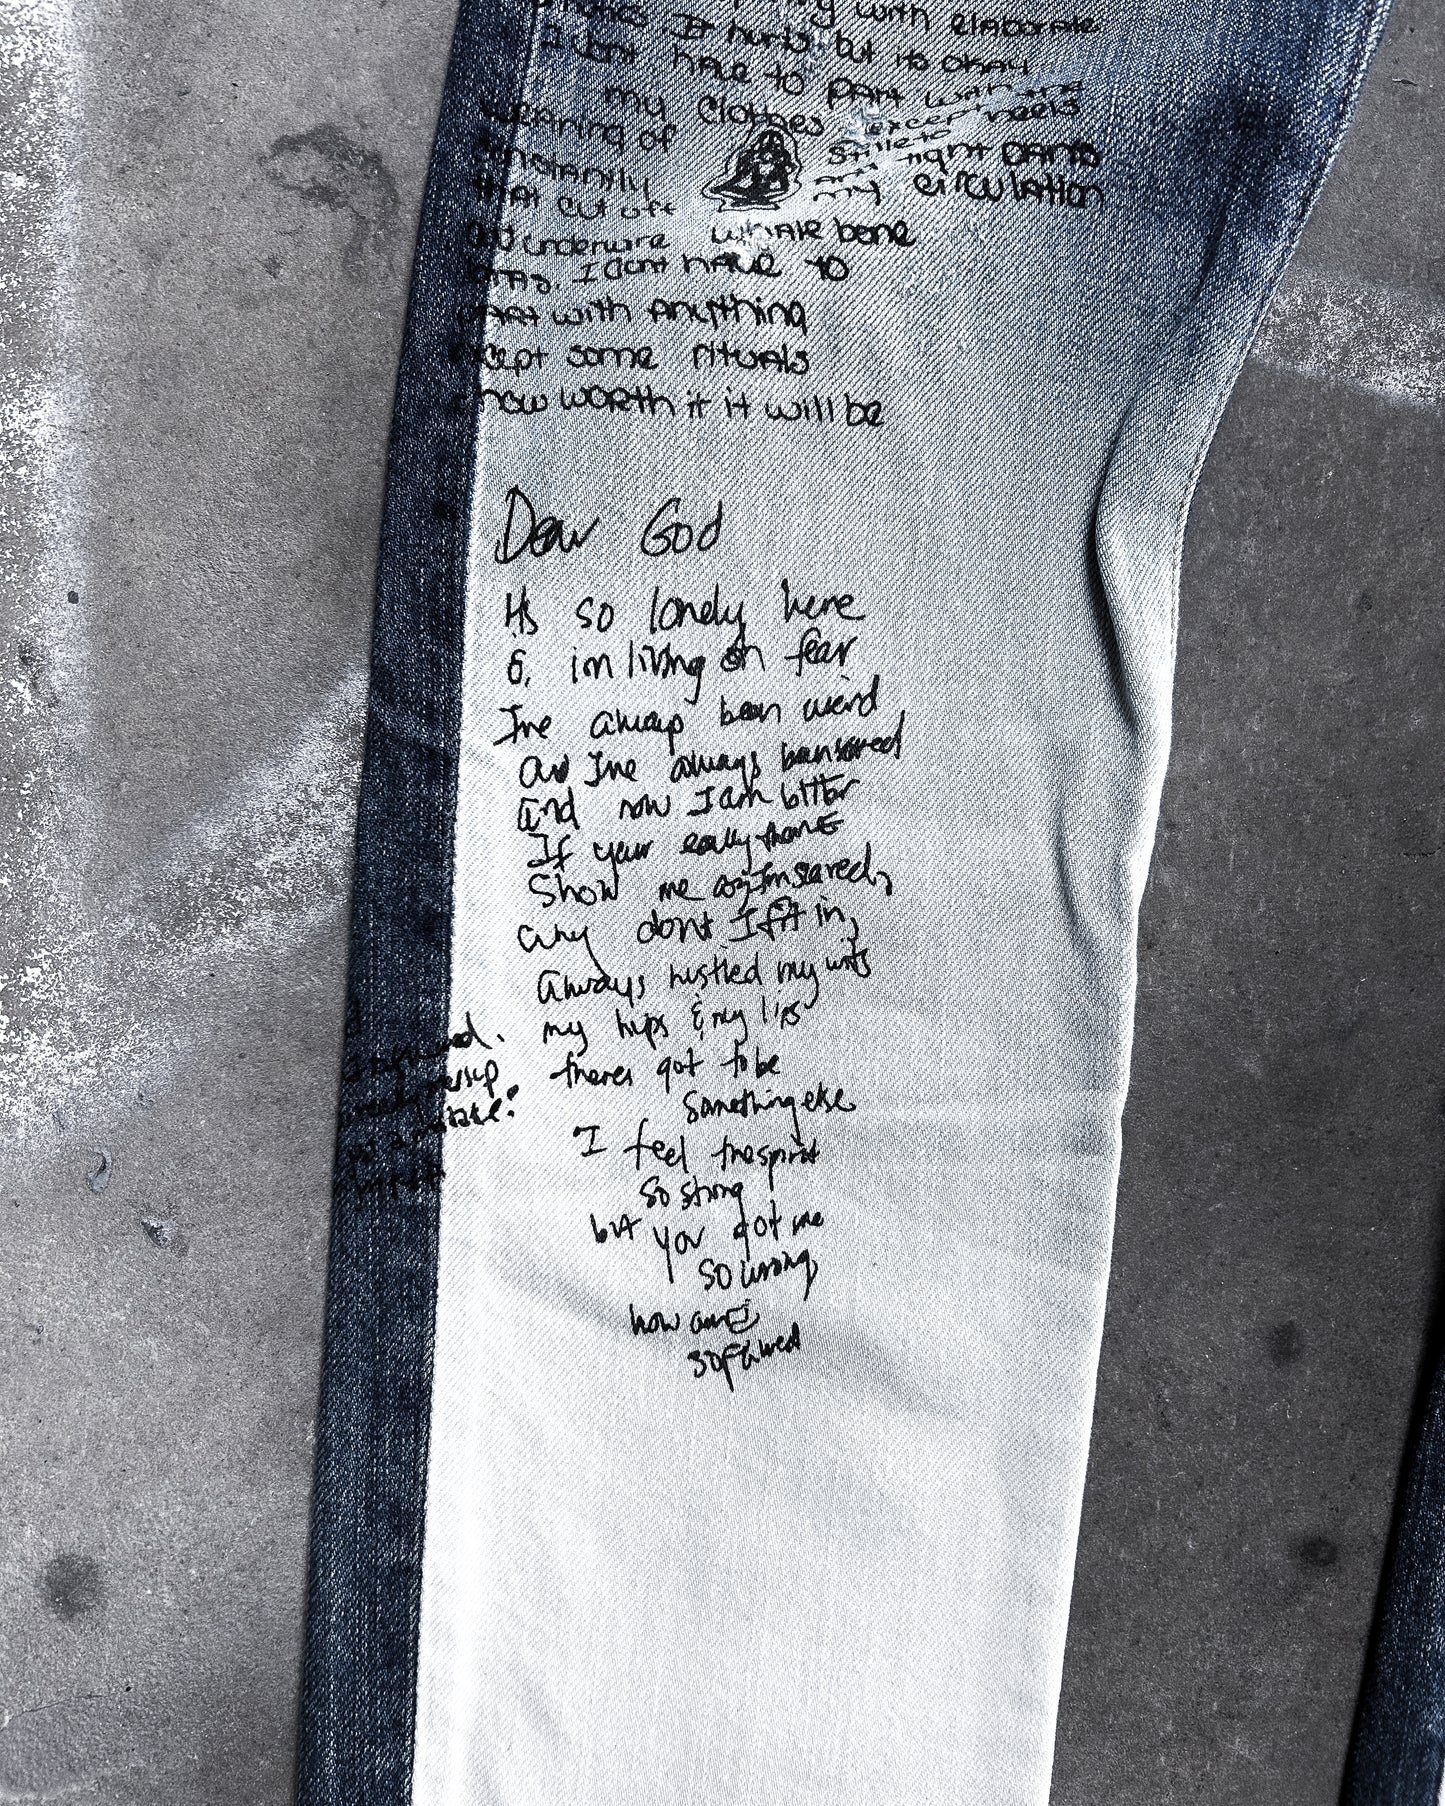 with elaborate
It hurts but its okay
I dont have to part with
my clothes except heels
wearing of stiletto
constantly tight pants
that cut off my circulation
and underwire whale bone
I dont have to
part with anything
except some rituals
how worth it it will be
Dear God
Its so lonely here
&, im living on fear
I've always been weird
and I've always been scared
and now I am bitter
If your really there
Show me im scared,
why dont I fit in,
Always hustled my wits
my hips & my lips
theres got to be
something else
I feel the spirit
so strong
but you got me
so wrong,
how am I
so flawed